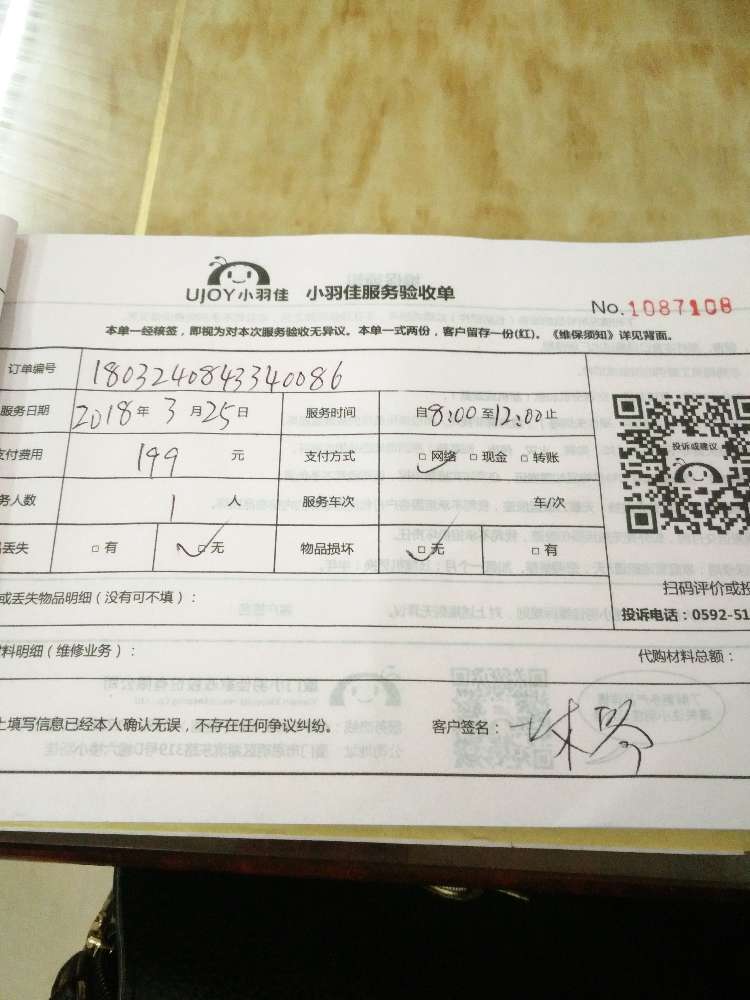 UJOY小羽佳 小羽佳服务验收单
No.1087108
本单一经核签，即视为对本次服务验收无异议。本单一式两份，客户留存一份(红)。《维保须知》详见背面。
订单编号 1803240843340086
服务日期 2018年3月25日 服务时间 自8:00至12:00止
支付费用 199 元 支付方式 □网络 □现金 □转账
务人数 1 人 服务车次 车/次
丢失 □有 □无 物品损坏 □无 □有
投诉或建议
扫码评价或投
或丢失物品明细（没有可不填）：
投诉电话：0592-51
料明细（维修业务）： 代购材料总额：
上填写信息已经本人确认无误，不存在任何争议纠纷。 客户签名：